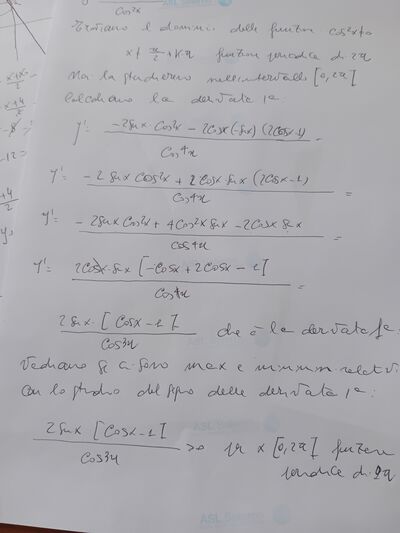 Cos²x
Troviamo il dominio della funzione cos²x≠0
x ≠ π/2 + kπ funzione periodica di 2π
Noi la studieremo nell'intervallo [0,2π]
Calcoliamo la derivata 1ª:
y' = -2senx·Cos²x - 2Cosx(-senx)(2Cosx-1) =
Cos⁴x
y' = -2senx Cos²x + 2Cosx·senx (2Cosx-1) =
Cos⁴x
y' = -2senx Cos²x + 4Cos²x senx - 2Cosx senx =
Cos⁴x
y' = 2Cosx·senx [-Cosx + 2Cosx - 1] =
Cos⁴x
2senx·[Cosx-1] che è la derivata 1ª
Cos³x
Vediamo se ci sono max e minimi relativi
con lo studio del segno della derivata 1ª:
2senx [Cosx-1] >0 x [0,2π] funzione
Cos³x periodica di 2π
x+x₁
2
x+4
2
-8 =
-12 =
+4
2
y₁
ASL Salerno